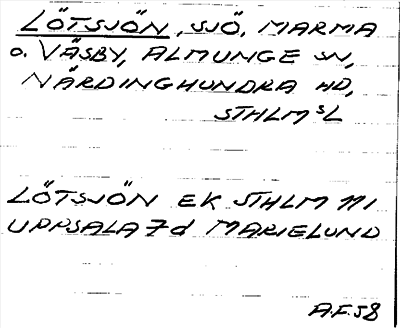 LÖTSJÖN, SJÖ, MARMA
o. VÄSBY, ALMUNGE SN,
NÄRDINGHUNDRA HD,
STHLMS L
LÖTSJÖN EK STHLM 111
UPPSALA 7d MARIELUND
A.F. 58